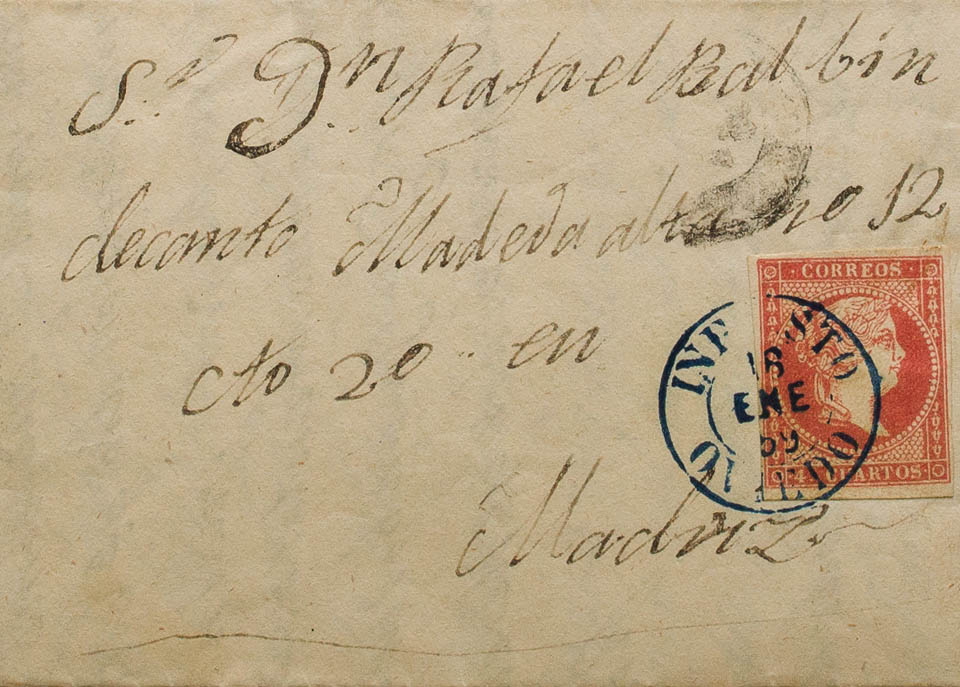 S.r D.n Rafael Balbin
decanto Madera alta no 12
cto 2o en
Madriz
CORREOS
4 CUARTOS
INFIESTO
18
ENE
59
OVIEDO